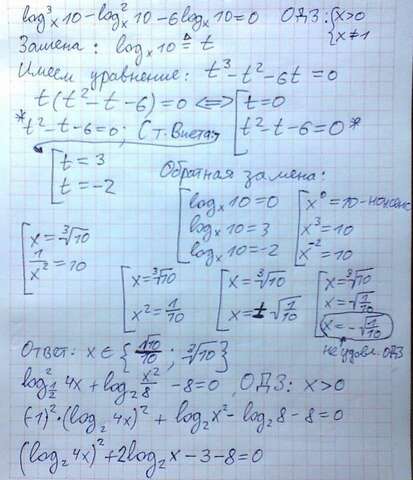 log³ₓ10 − log²ₓ10 − 6logₓ10 = 0 ОДЗ: {x>0
{x≠1
Замена: logₓ10 ≜ t
Имеем уравнение: t³ − t² − 6t = 0
t(t² − t − 6) = 0 <=> [t = 0
*t² − t − 6 = 0; (т. Виета) [t² − t − 6 = 0*
[t = 3
[t = −2
Обратная замена:
[logₓ10 = 0 [x⁰ = 10 - нонсенс
[logₓ10 = 3 [x³ = 10
[logₓ10 = −2 [x⁻² = 10
[x = ³√10
[1/x² = 10
[x = ³√10 [x = ³√10 [x = ³√10
[x² = 1/10 [x = ±√(1/10) [x = √(1/10)
[x = −√(1/10)
не удовл. ОДЗ
Ответ: x ∈ {√10/10; ³√10}
log²_(1/2) 4x + log₂ x²/8 − 8 = 0, ОДЗ: x > 0
(−1)²·(log₂ 4x)² + log₂ x² − log₂ 8 − 8 = 0
(log₂ 4x)² + 2log₂ x − 3 − 8 = 0